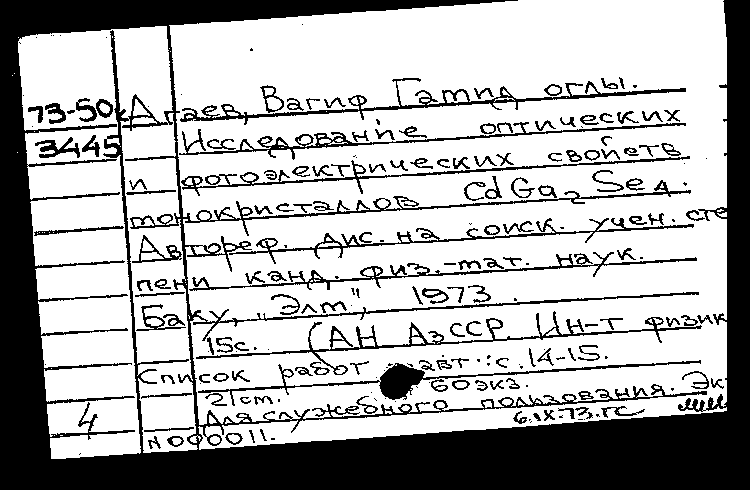 73-50к Агаев, Вагиф Гамид оглы.
3445 Исследование оптических
и фотоэлектрических свойств
монокристаллов CdGa2Se4.
Автореф. дис. на соиск. учен. сте
пени канд. физ.-мат. наук.
Баку, "Элм", 1973.
15с. (АН АзССР. Ин-т физик
Список работ авт.: с. 14-15.
21см. 60экз.
Для служебного пользования. Эк
4 N 000011. 6.IX.73.ГС